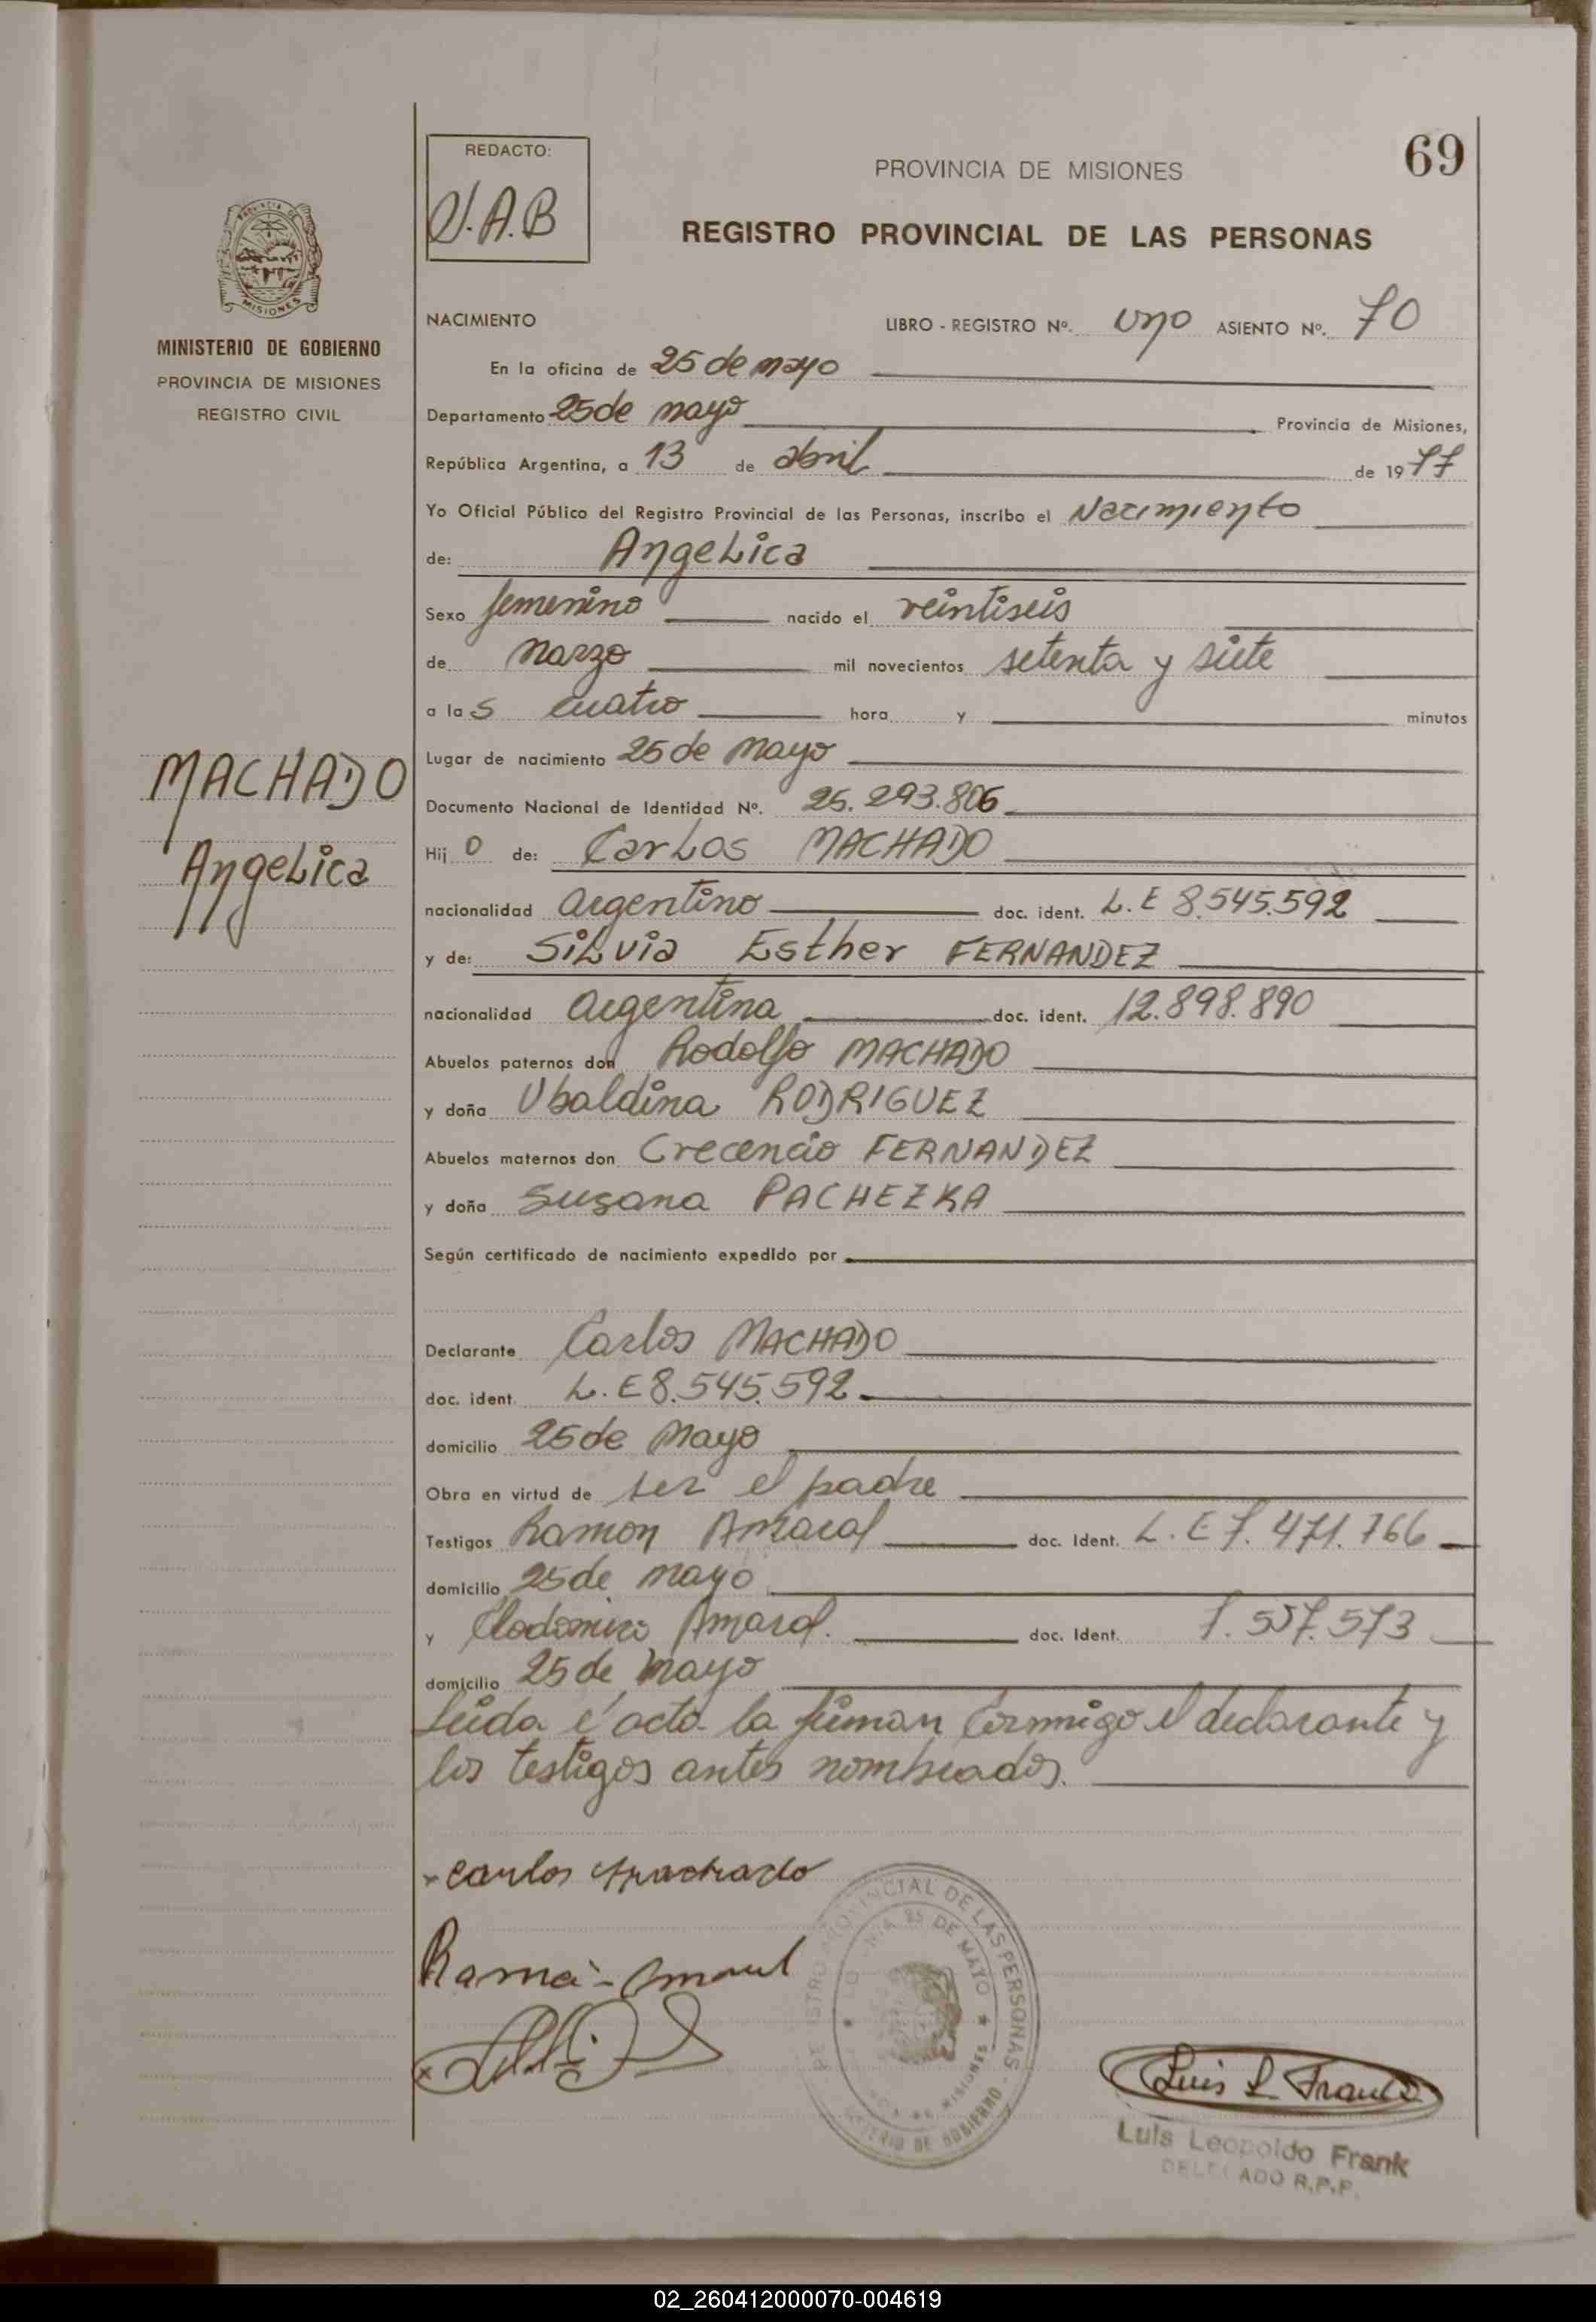 69
REDACTO:
PROVINCIA DE MISIONES
REGISTRO PROVINCIAL DE LAS PERSONAS
MISIONES
MINISTERIO DE GOBIERNO
PROVINCIA DE MISIONES
REGISTRO CIVIL
MACHADO
Angelica
NACIMIENTO LIBRO - REGISTRO Nº. uno ASIENTO Nº. 70
En la oficina de 25 de mayo
Departamento 25 de mayo Provincia de Misiones,
República Argentina, a 13 de abril de 1977
Yo Oficial Público del Registro Provincial de las Personas, inscribo el Nacimiento
de: Angelica
Sexo femenino nacido el veintiseis
de marzo mil novecientos setenta y siete
a las cuatro hora y minutos
Lugar de nacimiento 25 de mayo
Documento Nacional de Identidad Nº. 25.293.806
Hijo de: Carlos MACHADO
nacionalidad argentino doc. ident. L.E 8.545.592
y de: Silvia Esther FERNANDEZ
nacionalidad argentina doc. ident. 12.898.890
Abuelos paternos don Rodolfo MACHADO
y doña Ubaldina RODRIGUEZ
Abuelos maternos don Crecencio FERNANDEZ
y doña Susana PACHEZKA
Según certificado de nacimiento expedido por
Declarante Carlos MACHADO
doc. ident. L.E 8.545.592
domicilio 25 de mayo
Obra en virtud de ser el padre
Testigos Ramon Amaral doc. Ident. L.E 7.471.766
domicilio 25 de mayo
y Clodomiro Amaral. doc. Ident. 7.557.573
domicilio 25 de mayo
Leida el acta la firman conmigo el declarante y
los testigos antes nombrados.
Carlos Machado
Ramon Amaral
PROVINCIAL DE LAS PERSONAS
25 DE MAYO
MISIONES
DE GOBIERNO
Luis L Frank
Luis Leopoldo Frank
DELEGADO R.P.P.
02_260412000070-004619